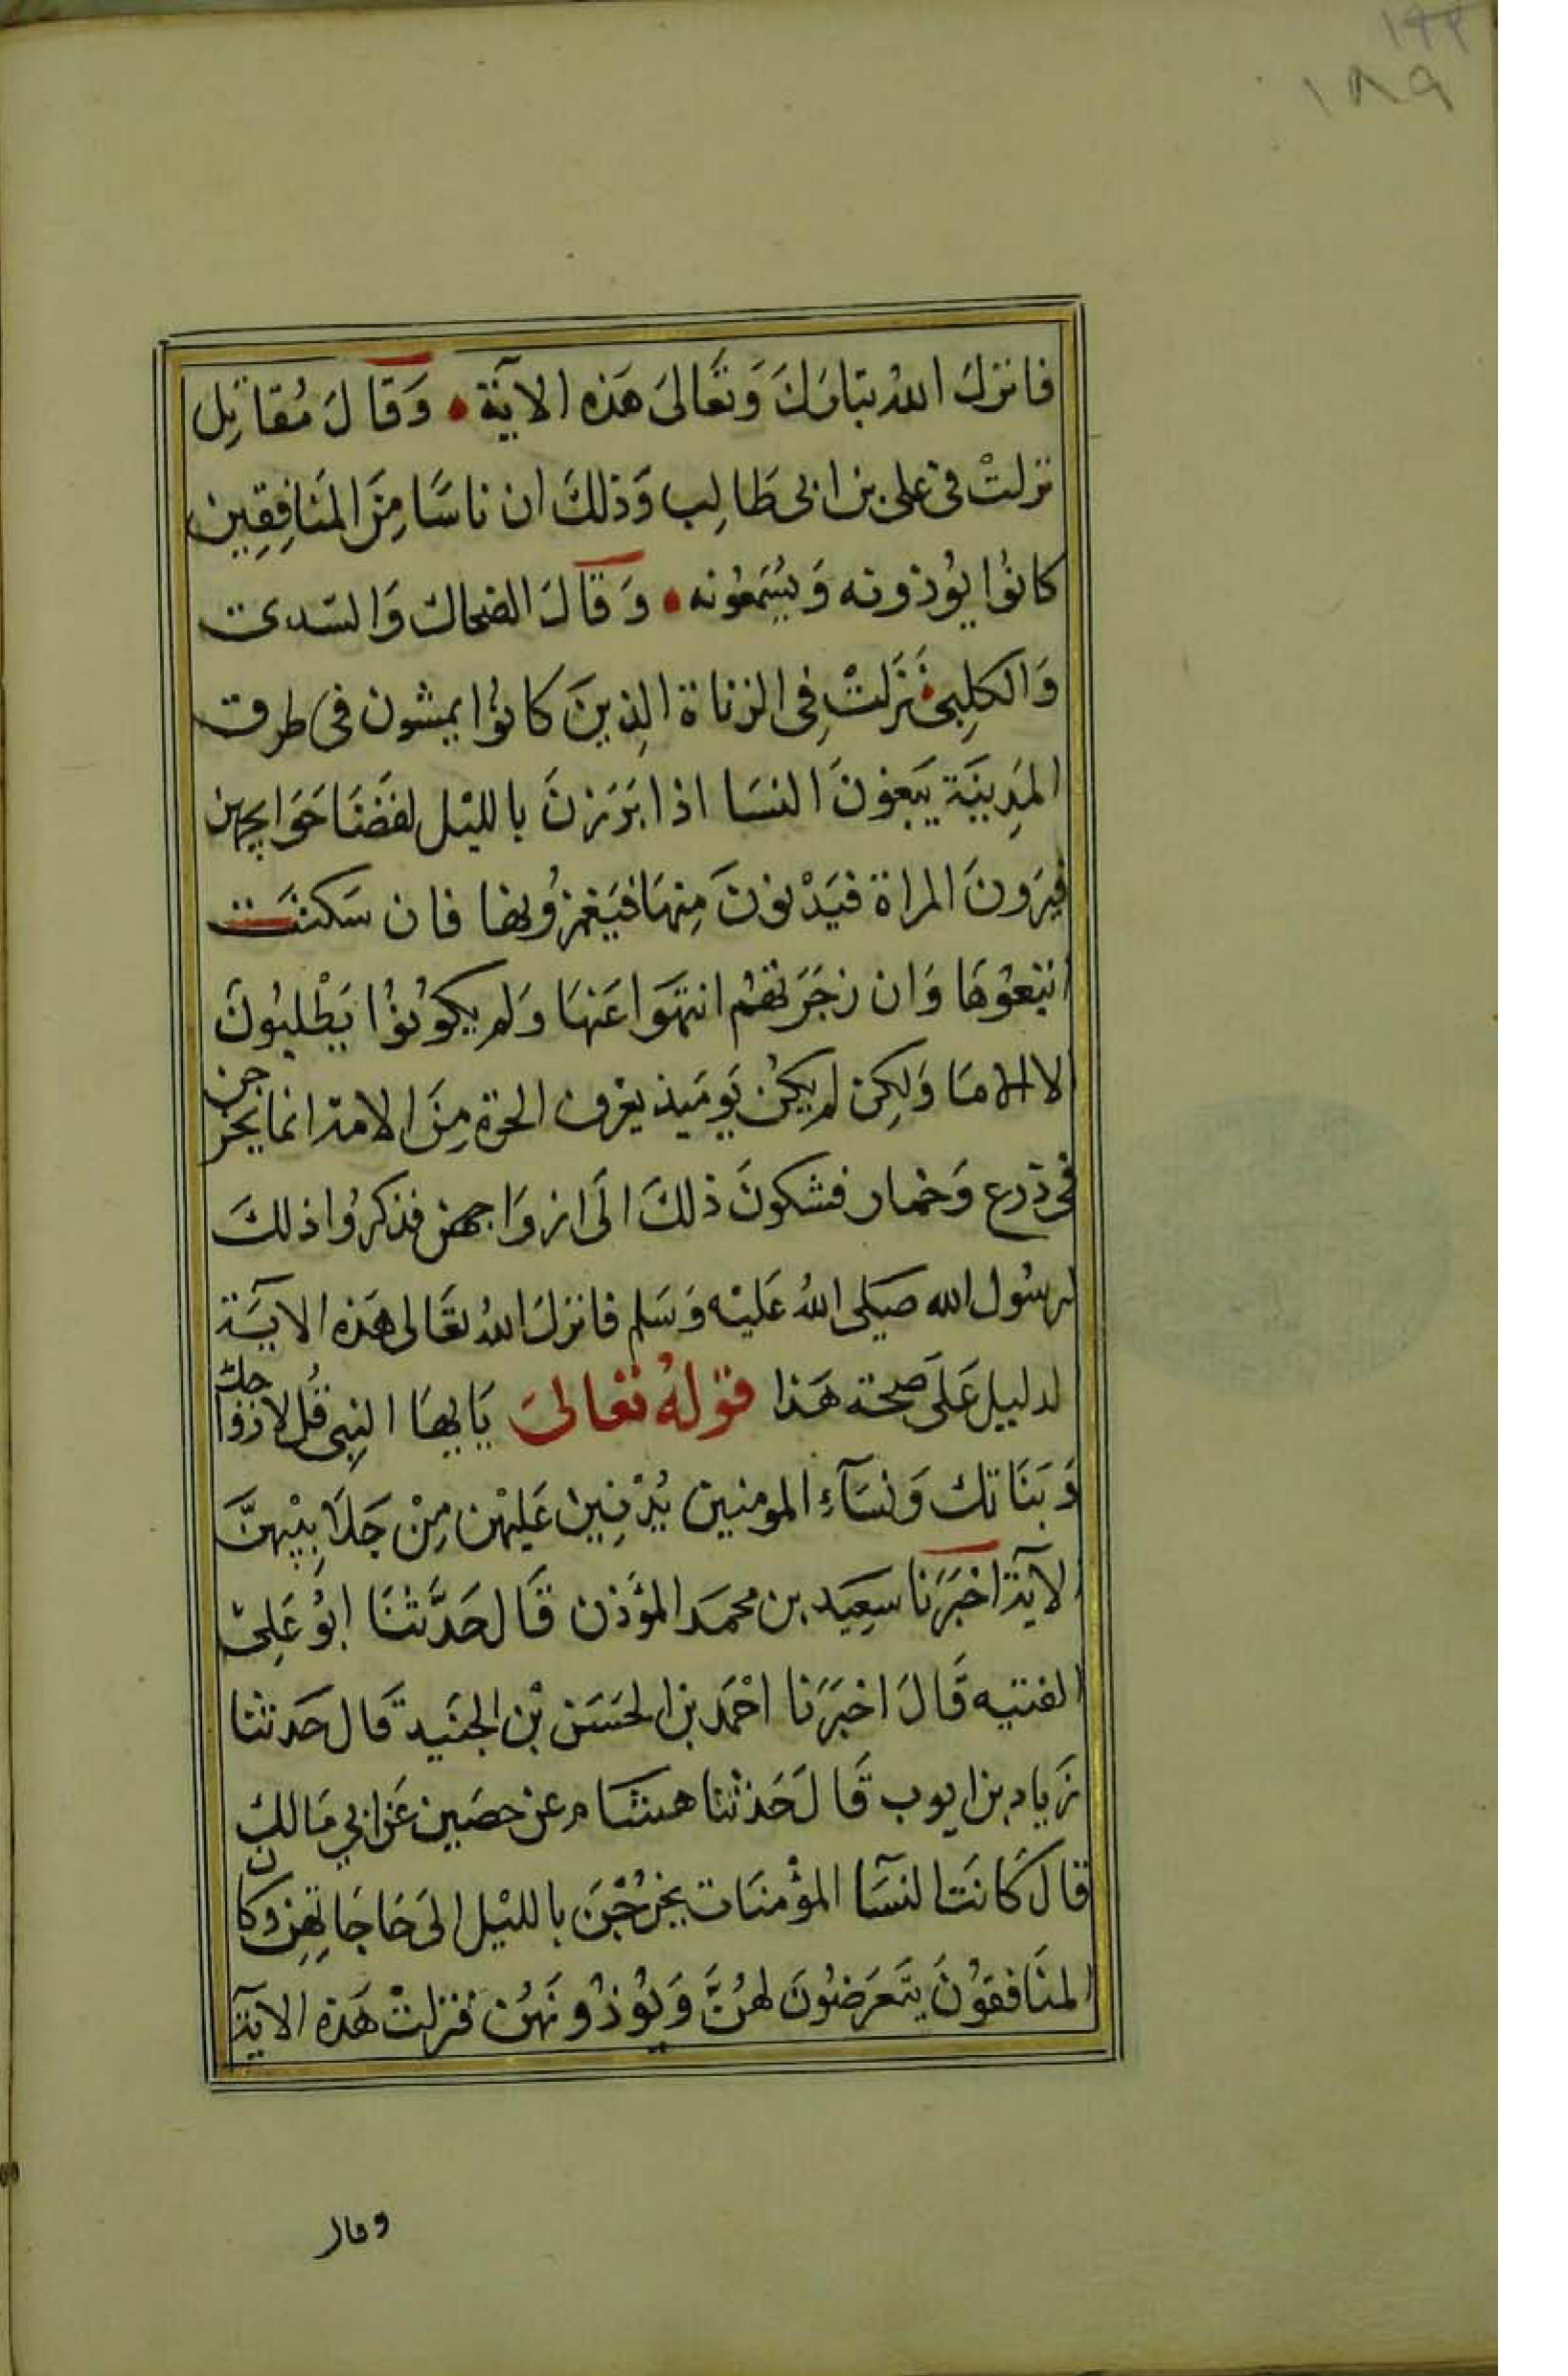 ١٩٢
١٨٩
فانزلَ اللهُ تبَاركَ وَتعَالىَ هَذه الآية وَقالَ مُقاتِل
نزلتْ فى على بن ابى طَالِب وَذلكَ ان ناسًا مِنَ المنَافِقِين
كانوُا يوُذونه وَيسُمَعوُنه وَقَالَ الضحاك وَالسّدى
وَالكلِبىُ نَزَلتْ فِى الزناة الذِينَ كانوُا يمشون فى طرق
المَدِينَة يَبَغونَ النسَا اذا بَرَزنَ بالليْل لقضَا حَوَايجهن
فيرَونَ المراة فيَدْنونَ مِنهَا فيَغمزُونها فان سَكتَت
اتبعُوهَا وَان زجَرَتهُم انتهَوا عَنهَا وَلم يكوُنوُا يَطْلبُونَ
الا الامَا وَلكِن لم يكُن يَوميَذ يعرف الحرة مِنَ الامة انما يخرجن
فى درع وَخمار فشكونَ ذلكَ الَى ازوَاجهن فذكرُوا ذلكَ
لرسُول الله صَلى اللهُ عَليْه وَسَلم فانزلَ اللهُ تعَالى هَذه الآيَة
لدليل عَلَى صحة هَذا قولهُ تعالىَ يَايهَا النبِى قُل لازواجك
وَبَنَاتك وَنسَآءِ المومنين يُدْنِينَ عَليْهن مِنْ جَلَابِيْبهنَّ
الآية اخبَرَنا سَعِيَد بن محمَد المؤَذن قَال حَدَّثنَا ابوُ عَلِىْ
الفقيه قَالَ اخبَرَنا احْمَد بن الحسَن بْن الجنَيد قَال حَدثنا
زَياد بن ايوب قَالَ حَدثنا هشَام عن حصَين عَن ابي مَالك
قالَ كَانَت النسَآ المؤمنَات يخرُجْنَ بالليْل الىَ حَاجَاتِهِن وَكان
المنَافقوُنَ يتَعَرَضوُنَ لهُنَّ وَيوُذُونَهُن فنزلتْ هَذه الآية
وقال